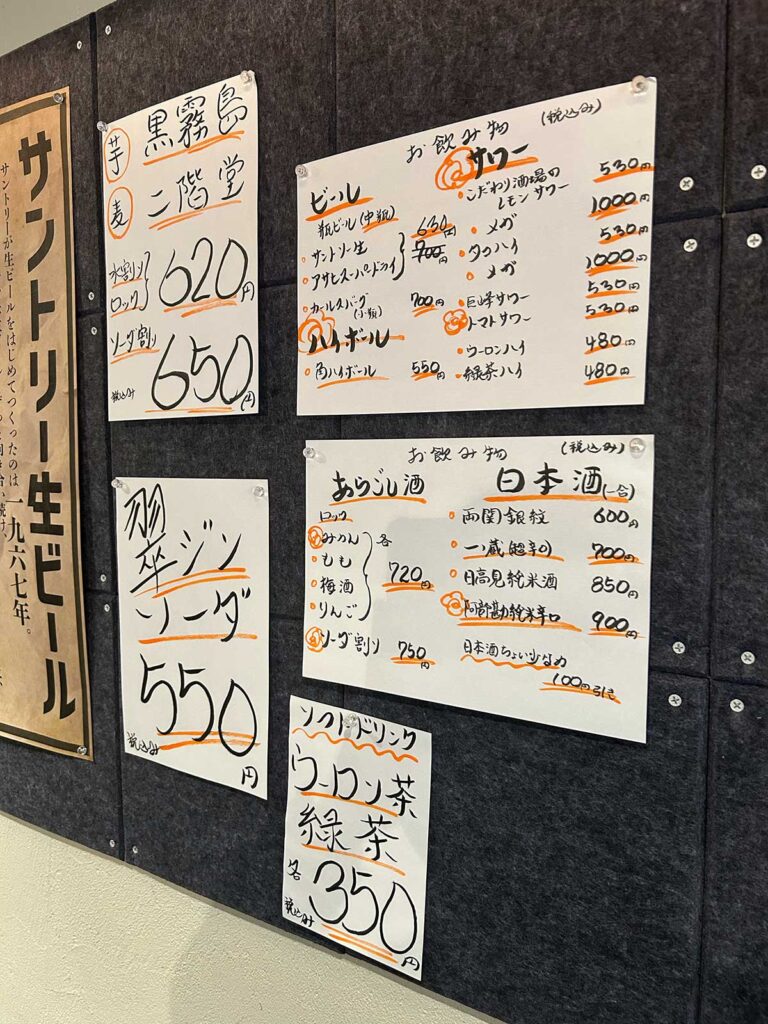 サントリー生ビール
サントリーが生ビールをはじめてつくったのは
一九六七年。
芋 黒霧島
麦 二階堂
水割り
ロック
620円
ソーダ割り
650円
税込み
お飲み物 (税込み)
ビール
瓶ビール(中瓶)
・サントリー生
・アサヒスーパードライ
630円
700円
・カールスバーグ 700円
(小瓶)
ハイボール
・角ハイボール 550円
サワー
・こだわり酒場の
レモンサワー 530円
・メガ 1000円
・タコハイ 530円
・メガ 1000円
・巨峰サワー 530円
トマトサワー 530円
・ウーロンハイ 480円
・緑茶ハイ 480円
翠ジン
ソーダ
550円
税込み
お飲み物 (税込み)
あらごし酒
ロック
みかん
・もも
・梅酒
・りんご
各
720円
ソーダ割り 750円
日本酒(一合)
・両関銀紋 600円
・一ノ蔵(超辛口) 700円
・日高見純米酒 850円
阿部勘純米辛口 900円
日本酒ちょい少なめ
100円引き
ソフトドリンク
ウーロン茶
緑茶
各
350円
税込み